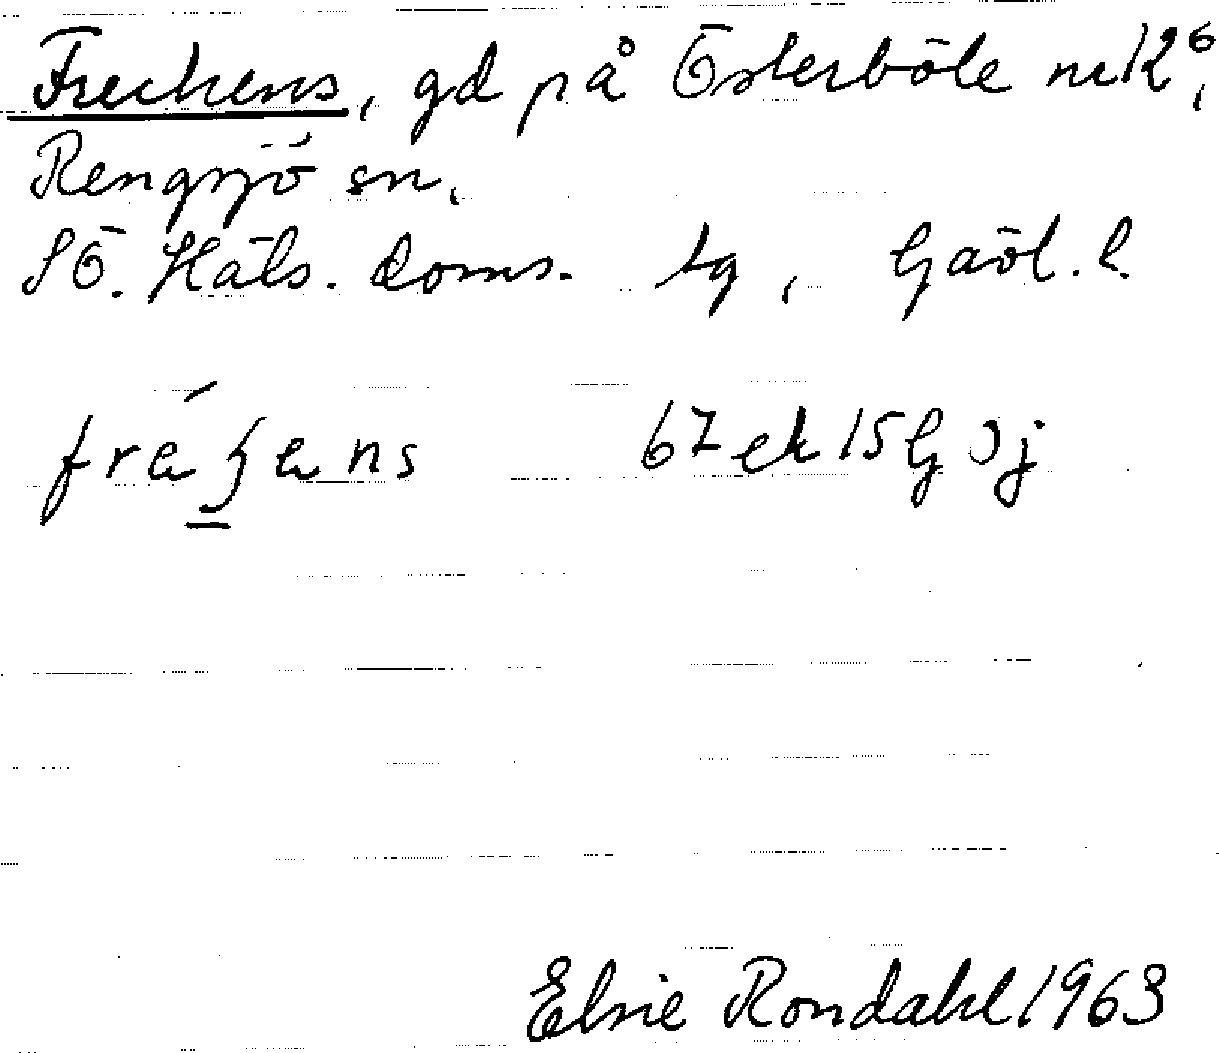 Freckens, gd på Österböle nr 12⁶,
Rengsjö sn,
SÖ. Häls. doms. tg, Gävl. l.
67 ek 15 G
Elsie Rondahl 1963